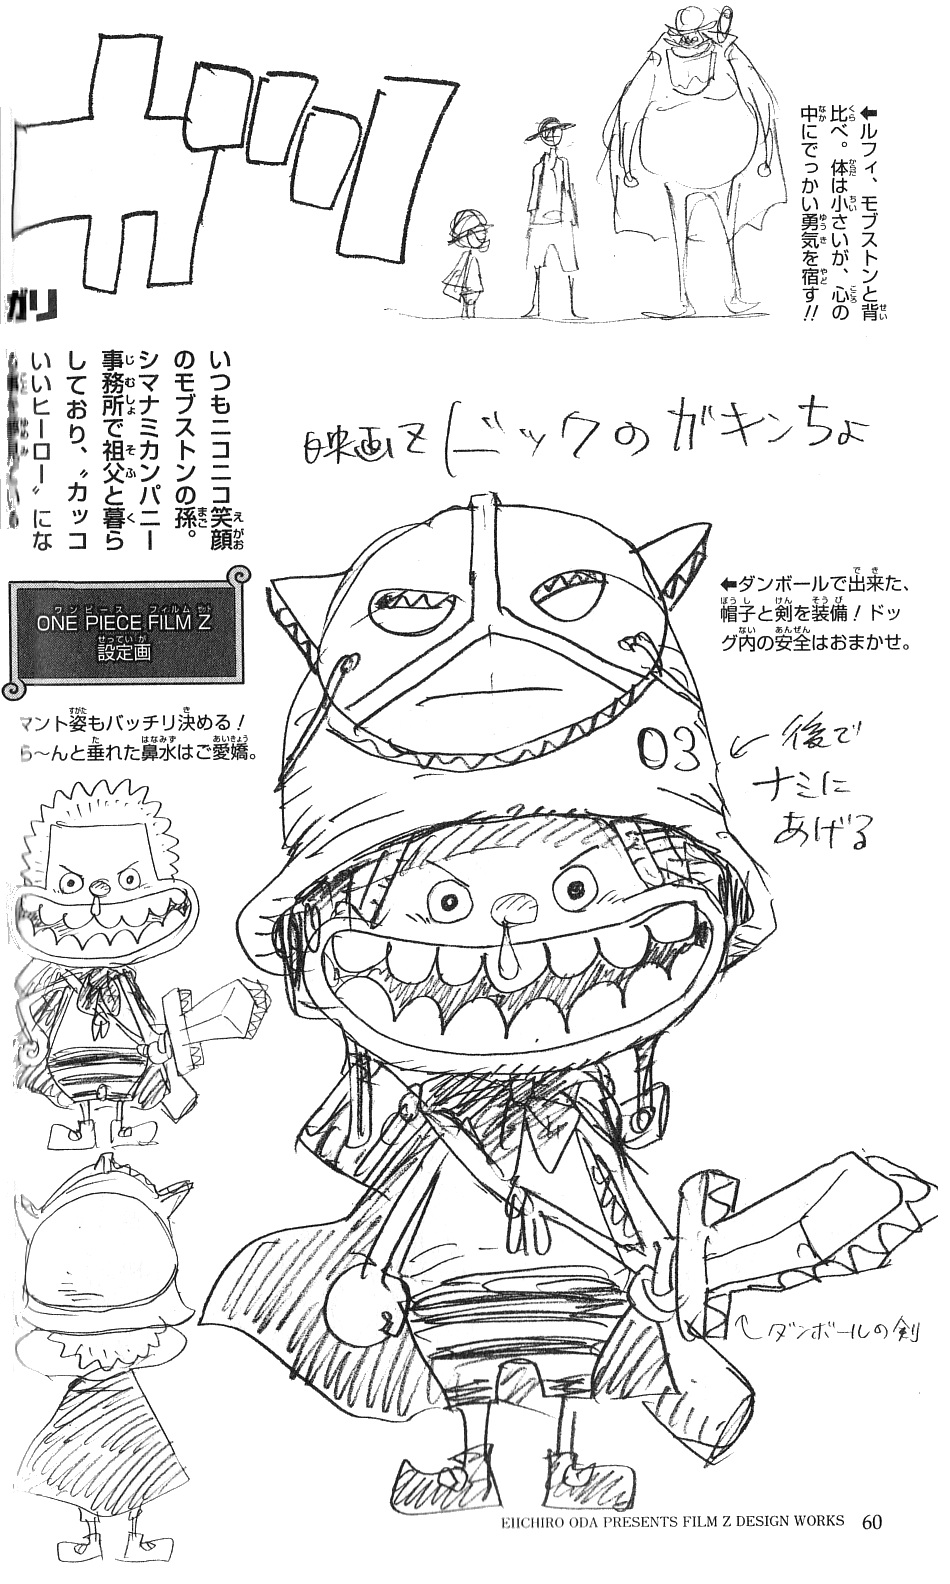 ガリ
ガリ
←ルフィ、モブストンと背
比べ。体は小さいが、心の
中にでっかい勇気を宿す!!
いつもニコニコ笑顔
のモブストンの孫。
シマナミカンパニー
事務所で祖父と暮ら
しており、〝カッコ
いいヒーロー〟にな
映画Z ドックのガキンちょ
ONE PIECE FILM Z
設定画
←ダンボールで出来た、
帽子と剣を装備!ドッ
グ内の安全はおまかせ。
マント姿もバッチリ決める!
ら〜んと垂れた鼻水はご愛嬌。
03
後で
ナミに
あげる
ダンボールの剣
EIICHIRO ODA PRESENTS FILM Z DESIGN WORKS 60